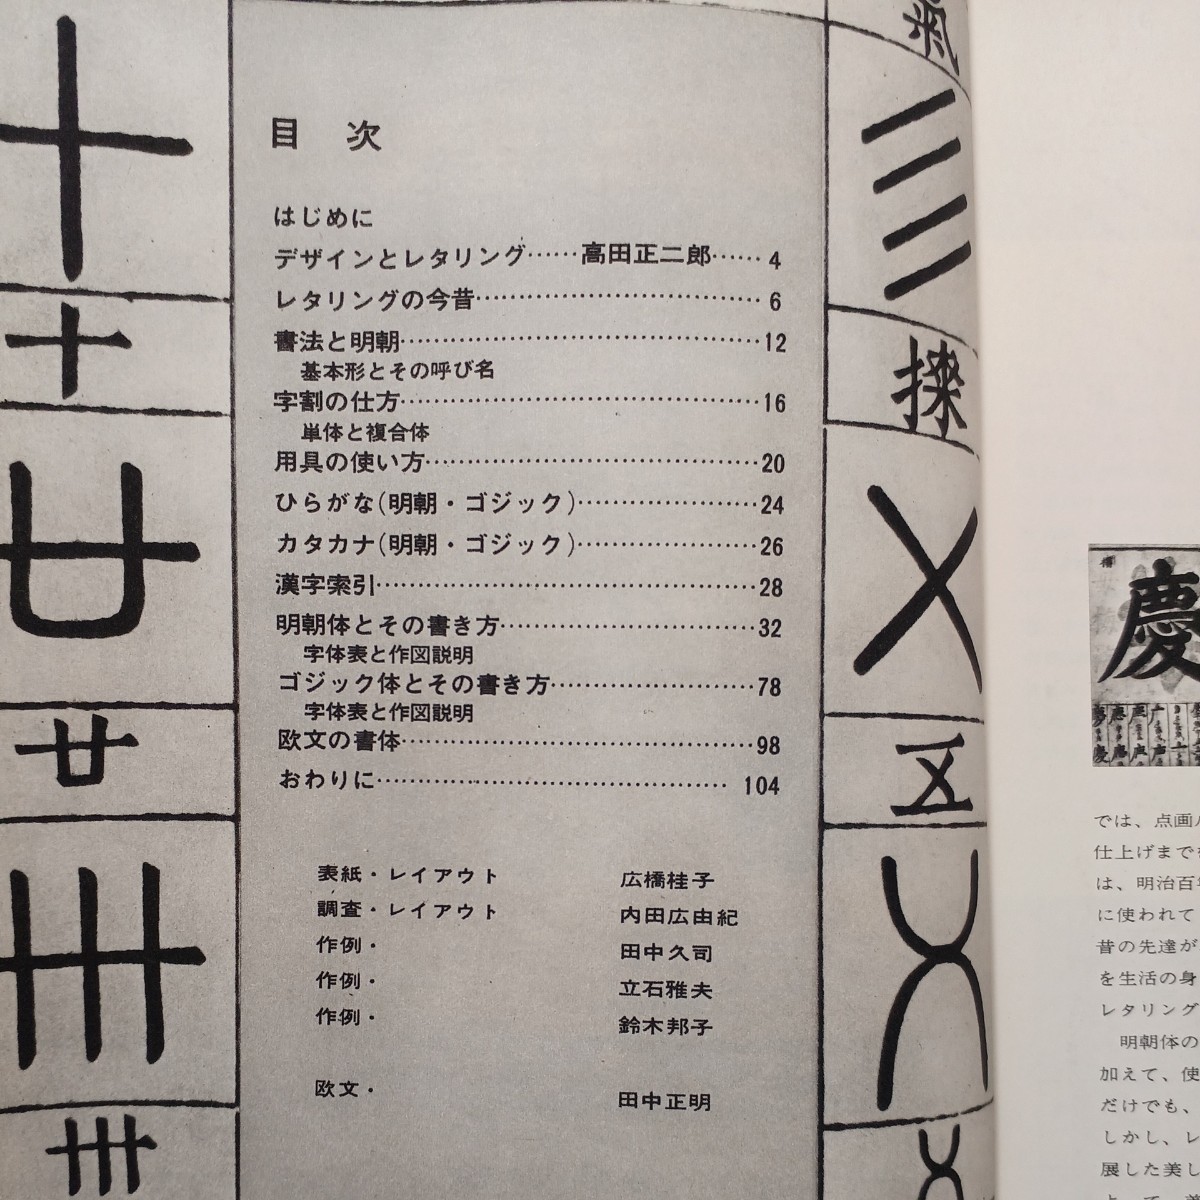 目 次
はじめに
デザインとレタリング……高田正二郎……4
レタリングの今昔……6
書法と明朝……12
基本形とその呼び名
字割の仕方……16
単体と複合体
用具の使い方……20
ひらがな(明朝・ゴジック)……24
カタカナ(明朝・ゴジック)……26
漢字索引……28
明朝体とその書き方……32
字体表と作図説明
ゴジック体とその書き方……78
字体表と作図説明
欧文の書体……98
おわりに……104
表紙・レイアウト 広橋桂子
調査・レイアウト 内田広由紀
作例・ 田中久司
作例・ 立石雅夫
作例・ 鈴木邦子
欧文・ 田中正明
十
十
廿
廿
卌
卌
氣
三
㐅
五
慶
では、点画
仕上げまで
は、明治百
に使われて
昔の先達が
を生活の身
レタリング
明朝体の
加えて、使
だけでも、
しかし、レ
展した美し